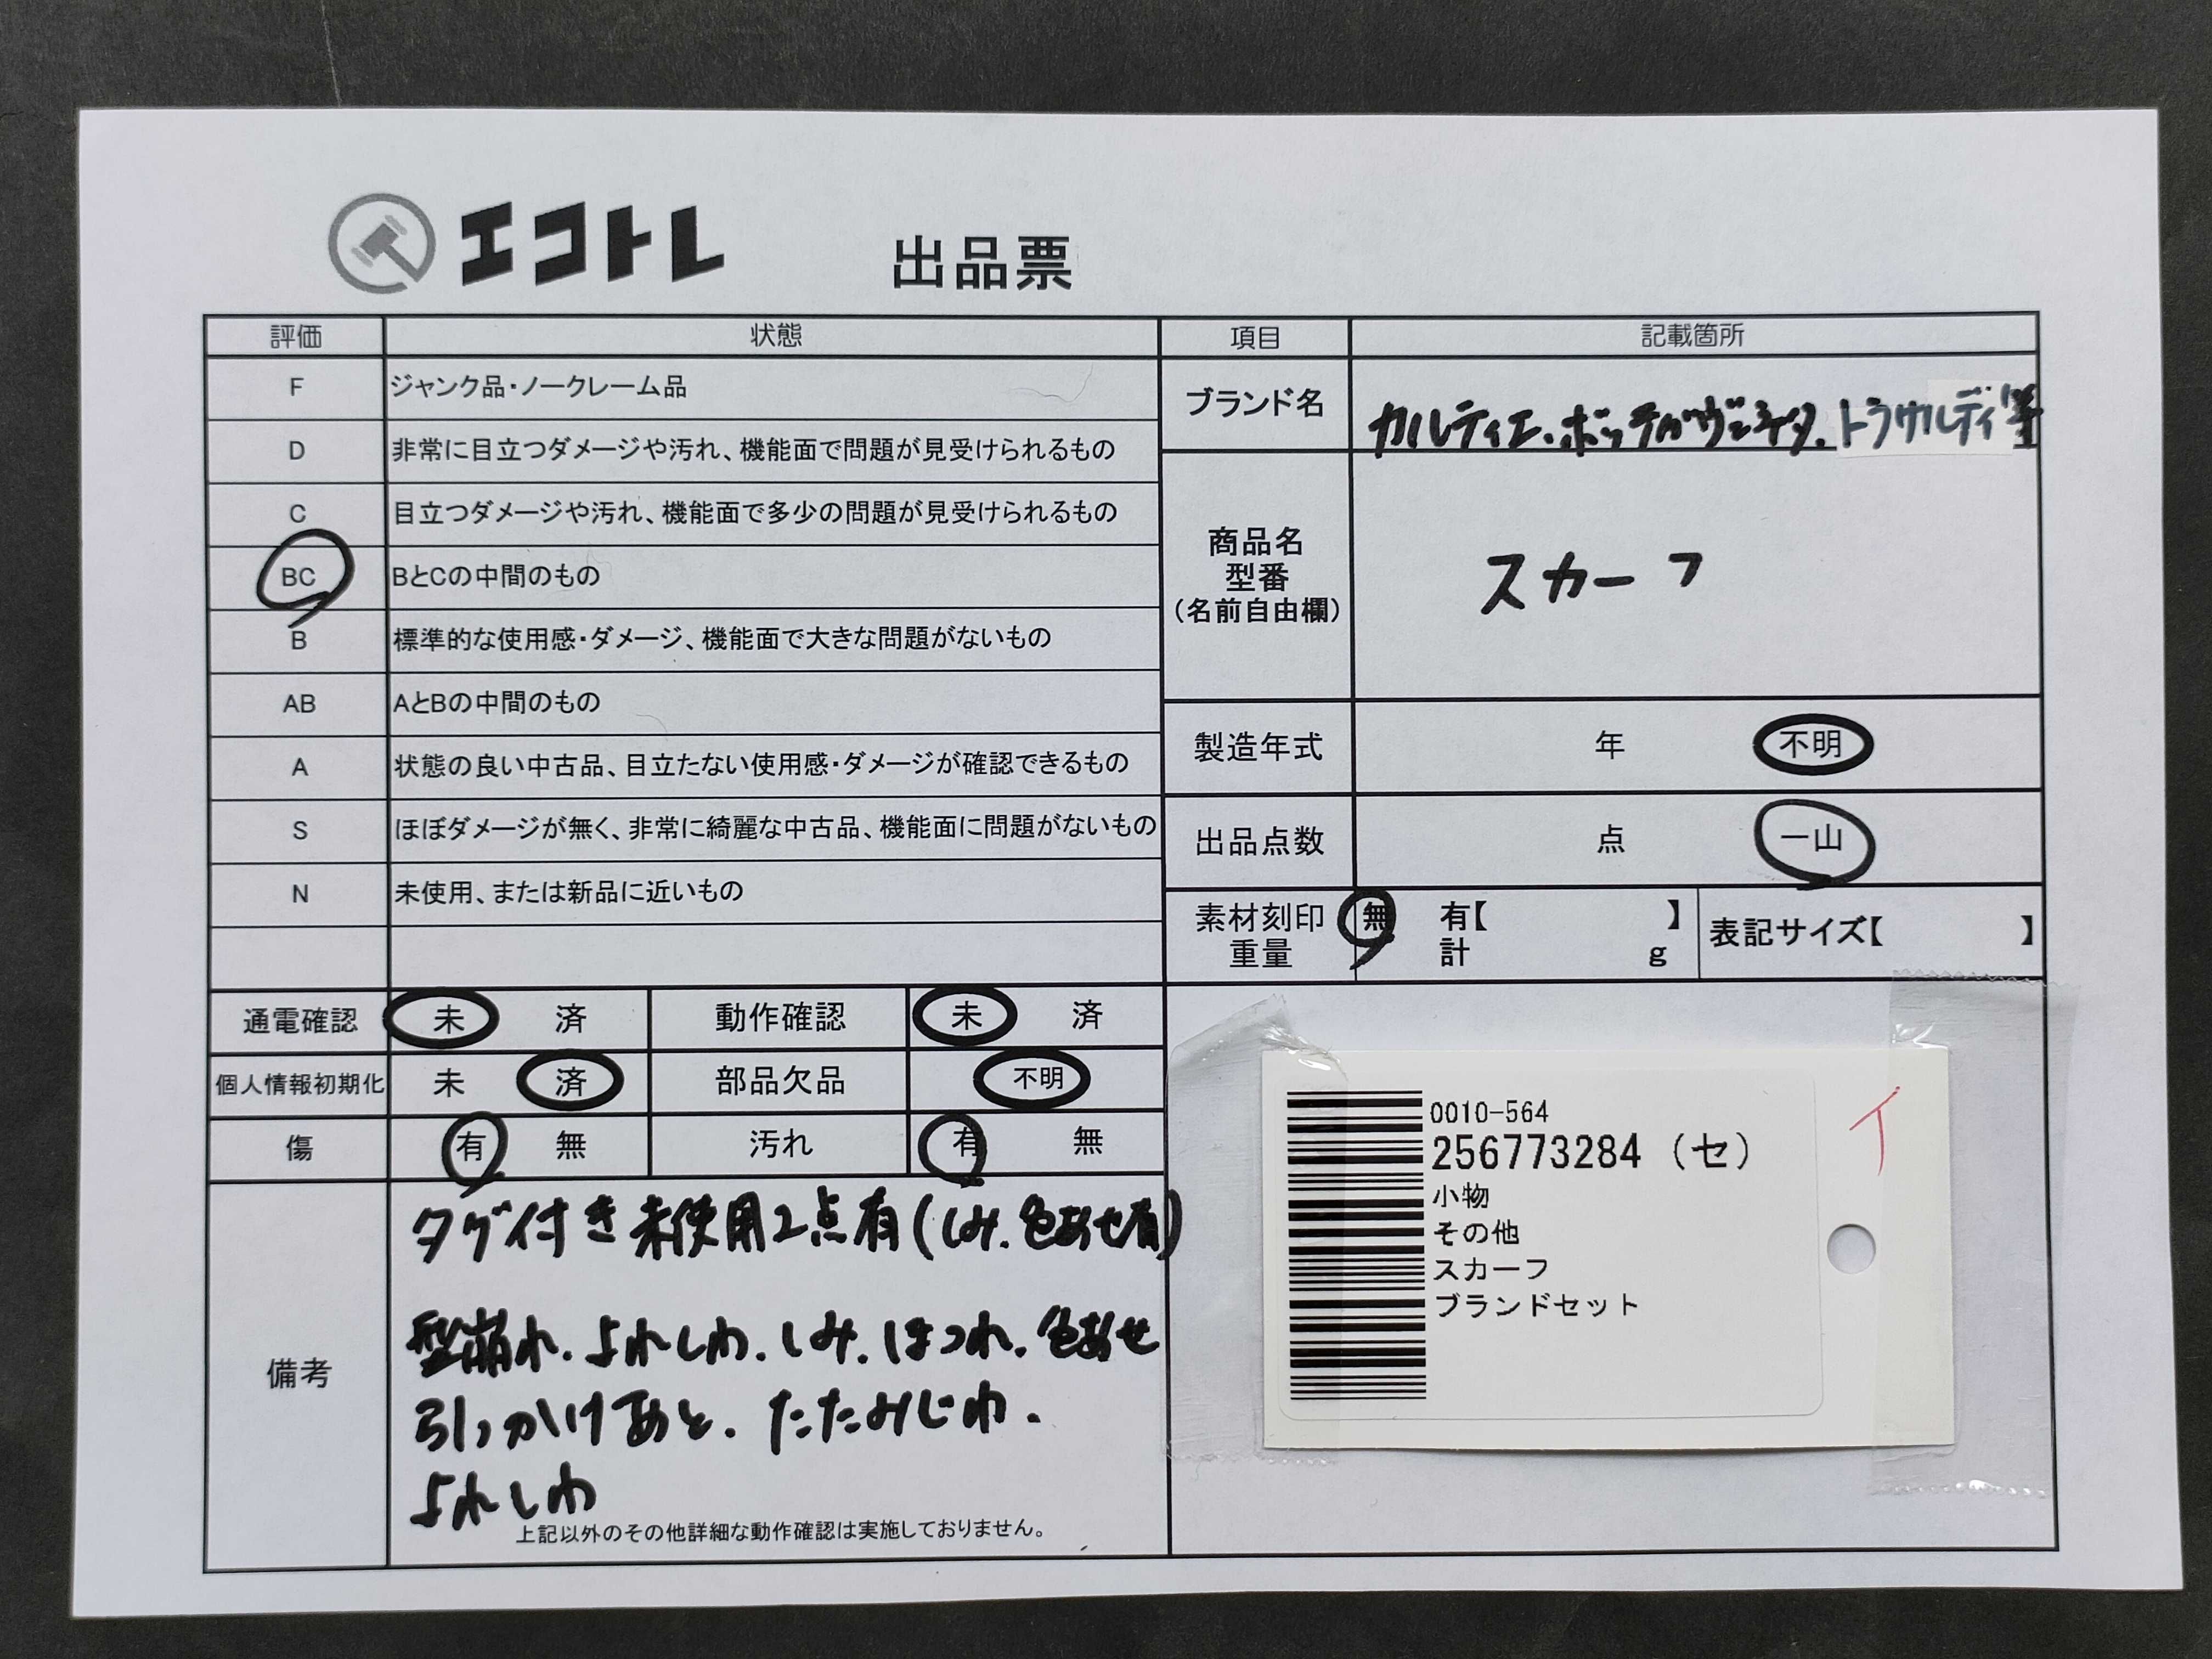 エコトレ 出品票
評価 状態 項目 記載箇所
F ジャンク品・ノークレーム品
D 非常に目立つダメージや汚れ、機能面で問題が見受けられるもの
C 目立つダメージや汚れ、機能面で多少の問題が見受けられるもの
BC BとCの中間のもの
B 標準的な使用感・ダメージ、機能面で大きな問題がないもの
AB AとBの中間のもの
A 状態の良い中古品、目立たない使用感・ダメージが確認できるもの
S ほぼダメージが無く、非常に綺麗な中古品、機能面に問題がないもの
N 未使用、または新品に近いもの
ブランド名 カルティエ、ボッテガヴェネタ、トラサルディ等
商品名
型番
(名前自由欄)
スカーフ
製造年式 年 不明
出品点数 点 一山
素材刻印 無 有【 】
重量 計 g
表記サイズ【 】
通電確認 未 済 動作確認 未 済
個人情報初期化 未 済 部品欠品 不明
傷 有 無 汚れ 有 無
備考
タグ付き未使用2点有(しみ、色あせ有)
型崩れ、よれしわ、しみ、ほつれ、色あせ
引っかけあと、たたみじわ、
よれしわ
上記以外のその他詳細な動作確認は実施しておりません。
0010-564
256773284 (セ)
小物
その他
スカーフ
ブランドセット
イ